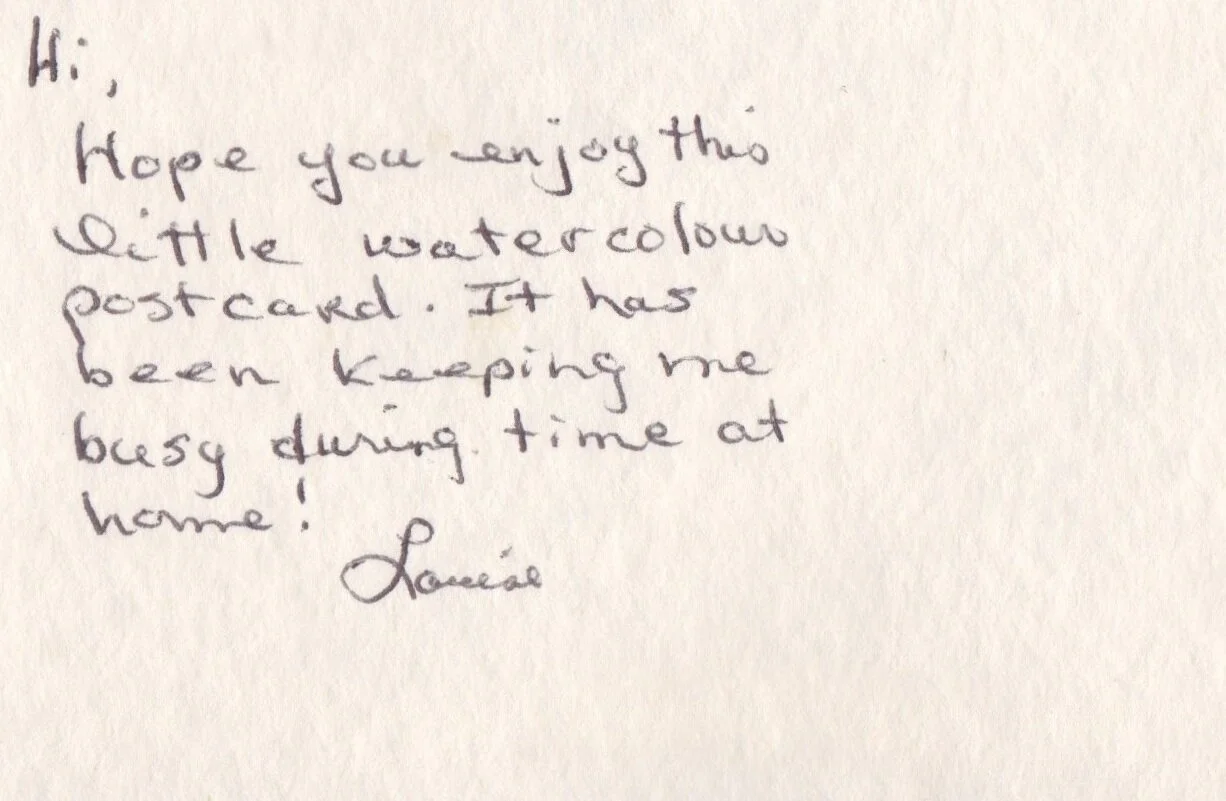 Hi,
Hope you enjoy this
little watercolour
postcard. It has
been keeping me
busy during time at
home!
Louise